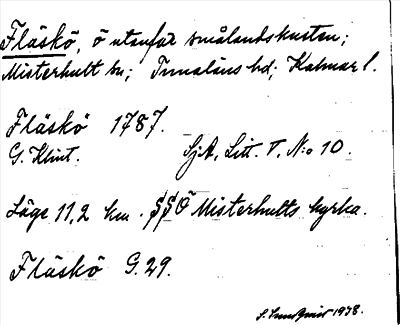 Fläskö, ö utanför smålandskusten;
Misterhult sn; Tunaläns hd; Kalmar l.
Fläskö 1787.
G. Klint. SjA, Litt. T, N:o 10.
Läge 11,2 km. SSO Misterhults kyrka.
Fläskö G.29.
S. Sundqvist 1938.